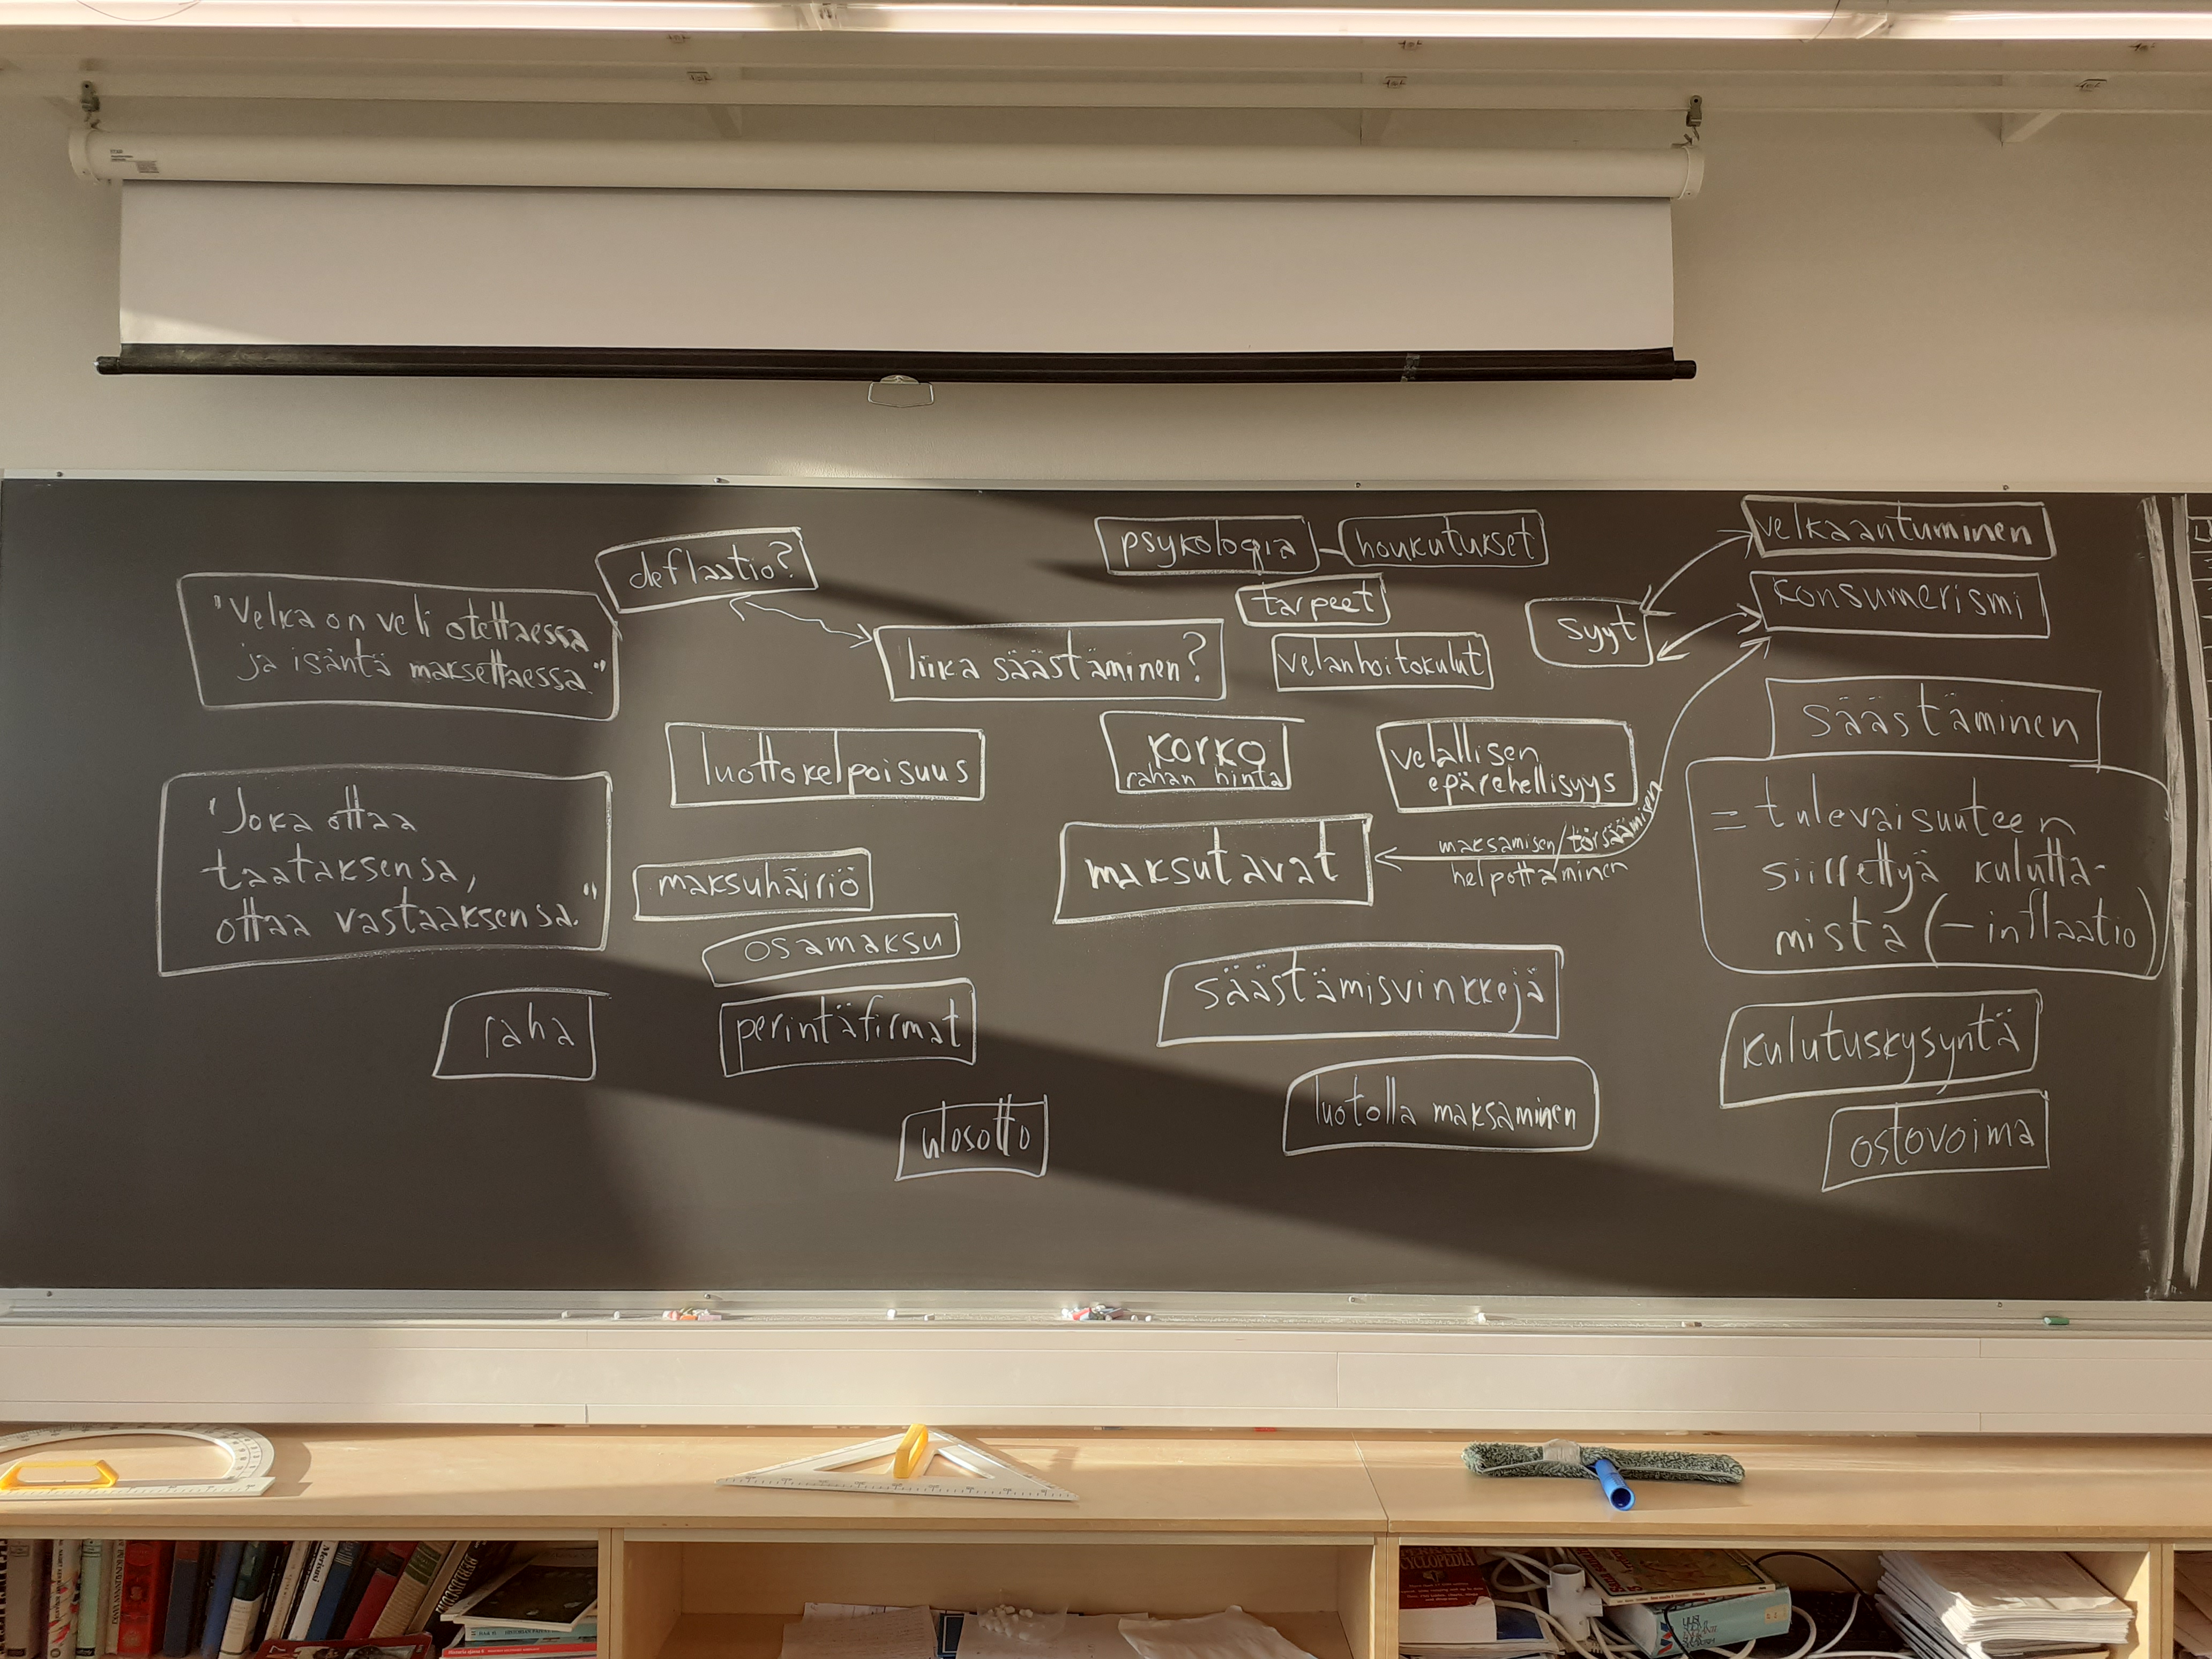 deflaatio?
"Velka on veli otettaessa
ja isäntä maksettaessa."
"Joka ottaa
taataksensa,
ottaa vastaaksensa."
raha
liika säästäminen?
luottokelpoisuus
maksuhäiriö
osamaksu
perintäfirmat
ulosotto
psykologia
houkutukset
tarpeet
velanhoitokulut
korko
rahan hinta
velallisen
epärehellisyys
maksutavat
maksamisen/törsäämisen
helpottaminen
säästämisvinkkejä
luotolla maksaminen
syyt
velkaantuminen
konsumerismi
säästäminen
= tulevaisuuteen
siirrettyä kulutta-
mista (– inflaatio)
kulutuskysyntä
ostovoima